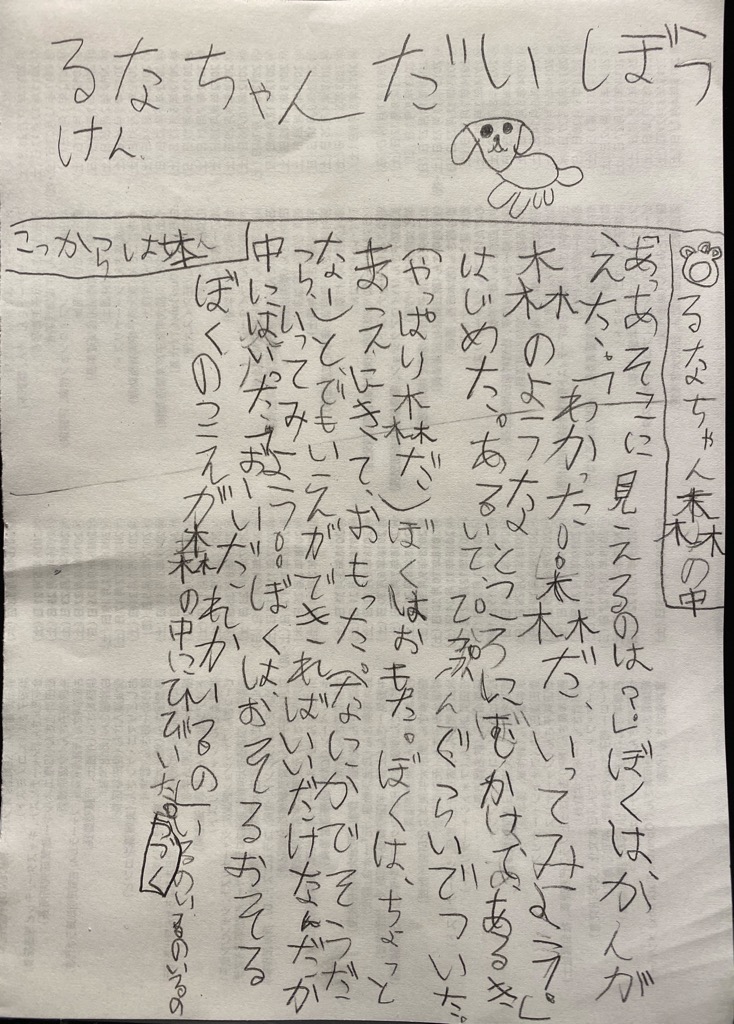 るなちゃん だいぼう
けん
るなちゃん森の中
「あっあそこに見えるのは?」ぼくは、かんが
えた。「わかった!。森だ、いってみよう。」
森のようなところにむかけて、あるき
はじめた。あるいて、10ぷんぐらいでついた。
(やっぱり森だ)ぼくはおもた。ぼくは、ちょっと
まえにきて、おもった。(なにかでそうだ
なー)と、でもいえができればいいだけなんだか
ら、いってみよう。。ぼくは、おそるおそる
中にはいった「おーいだれかいるの」いるのいるのいるの
ぼくのこえが森の中にひびいた。
つづく
こっからは本